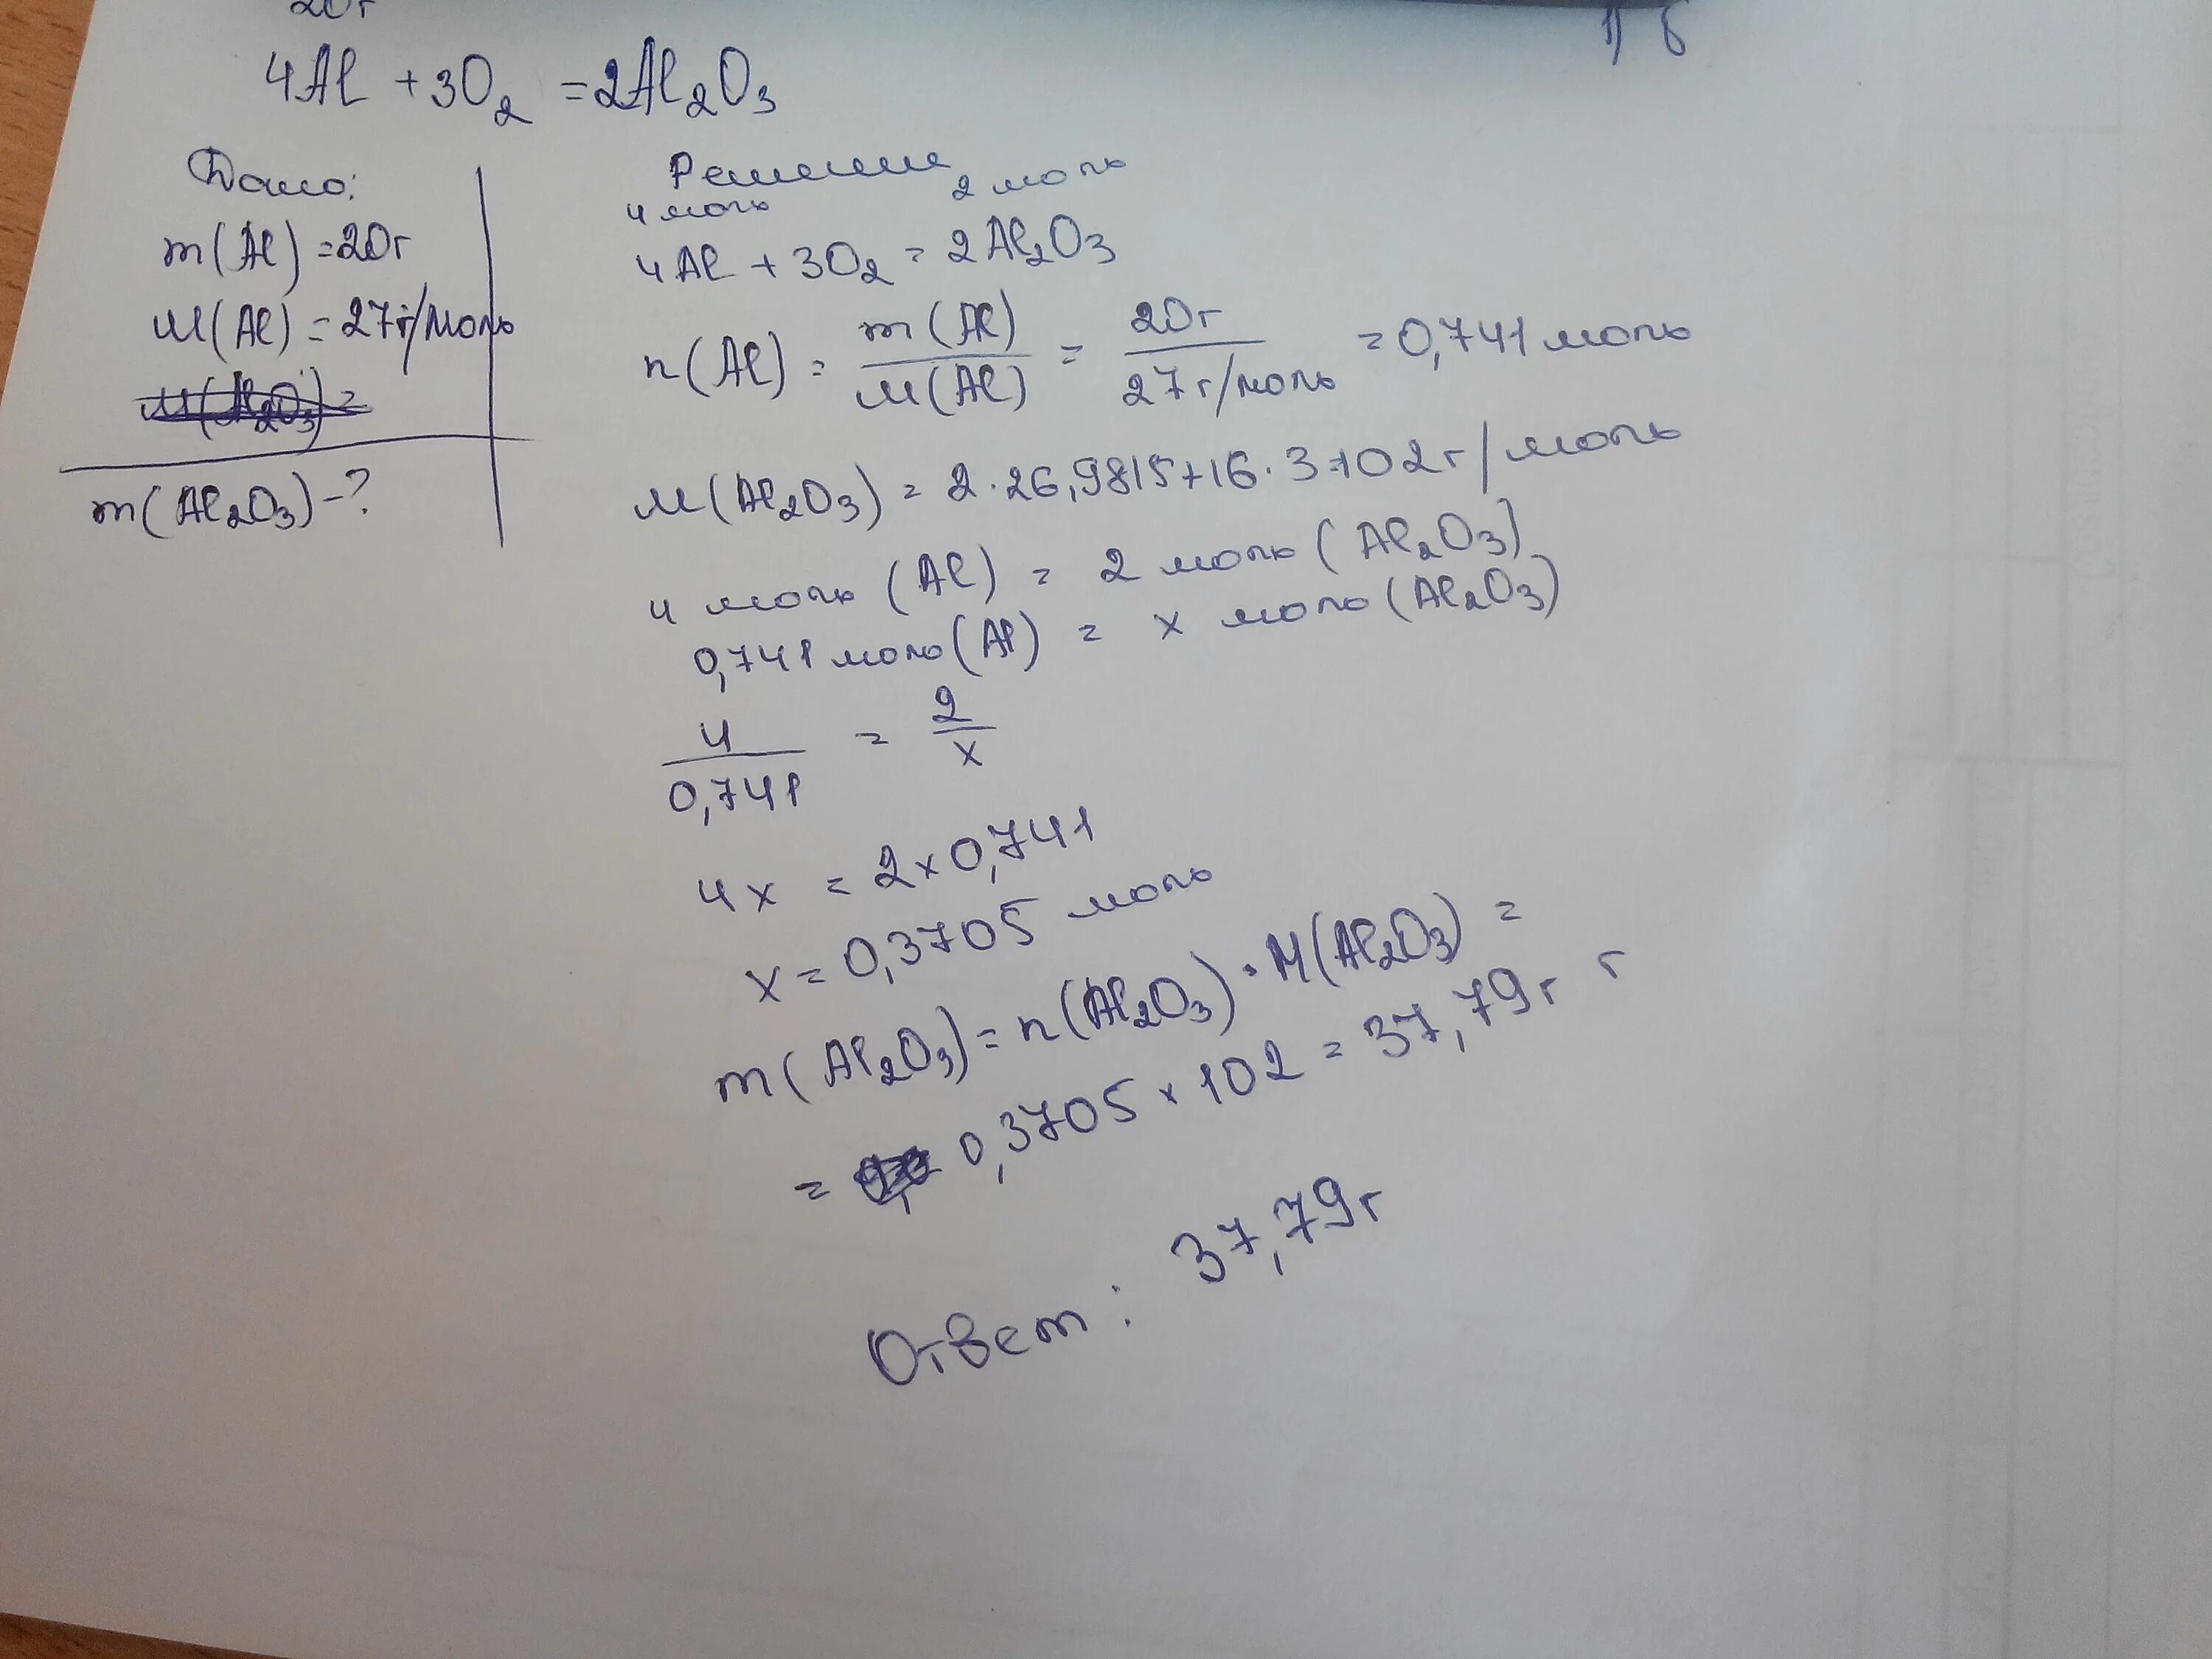 20г
4Al + 3O₂ = 2Al₂O₃
Дано:
m(Al) = 20г
M(Al) = 27г/моль
m(Al₂O₃) - ?
Решение
4 моль 2 моль
4Al + 3O₂ = 2Al₂O₃
n(Al) = m(Al) / M(Al) = 20г / 27г/моль = 0,741 моль
M(Al₂O₃) = 2·26,9815+16·3=102г/моль
4 моль (Al) = 2 моль (Al₂O₃)
0,741 моль (Al) = x моль (Al₂O₃)
4 / 0,741 = 2 / x
4x = 2×0,741
x = 0,3705 моль
m(Al₂O₃) = n(Al₂O₃) · M(Al₂O₃) =
= 0,3705 × 102 = 37,79г г
Ответ: 37,79г